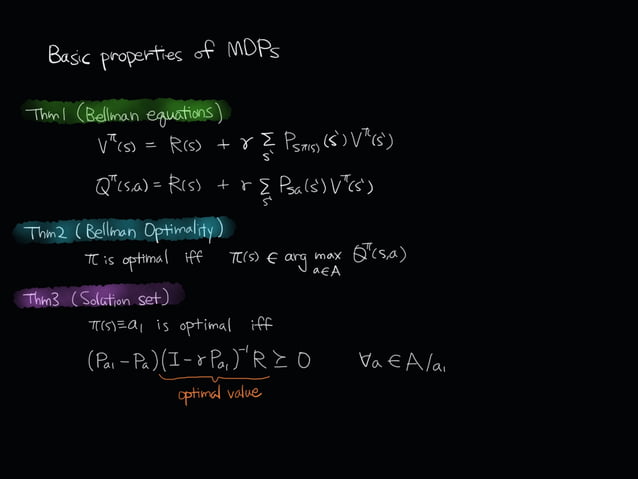 Basic properties of MDPs
Thm1 (Bellman equations)
V^π(s) = R(s) + γ Σ_{s'} P_{sπ(s)}(s') V^π(s')
Q^π(s,a) = R(s) + γ Σ_{s'} P_{sa}(s') V^π(s')
Thm2 (Bellman Optimality)
π is optimal iff π(s) ∈ arg max_{a∈A} Q^π(s,a)
Thm3 (Solution set)
π(s)≡a₁ is optimal iff
(P_{a₁} − P_a)(I − γP_{a₁})^{-1} R ⪰ 0 ∀a ∈ A/a₁
optimal value